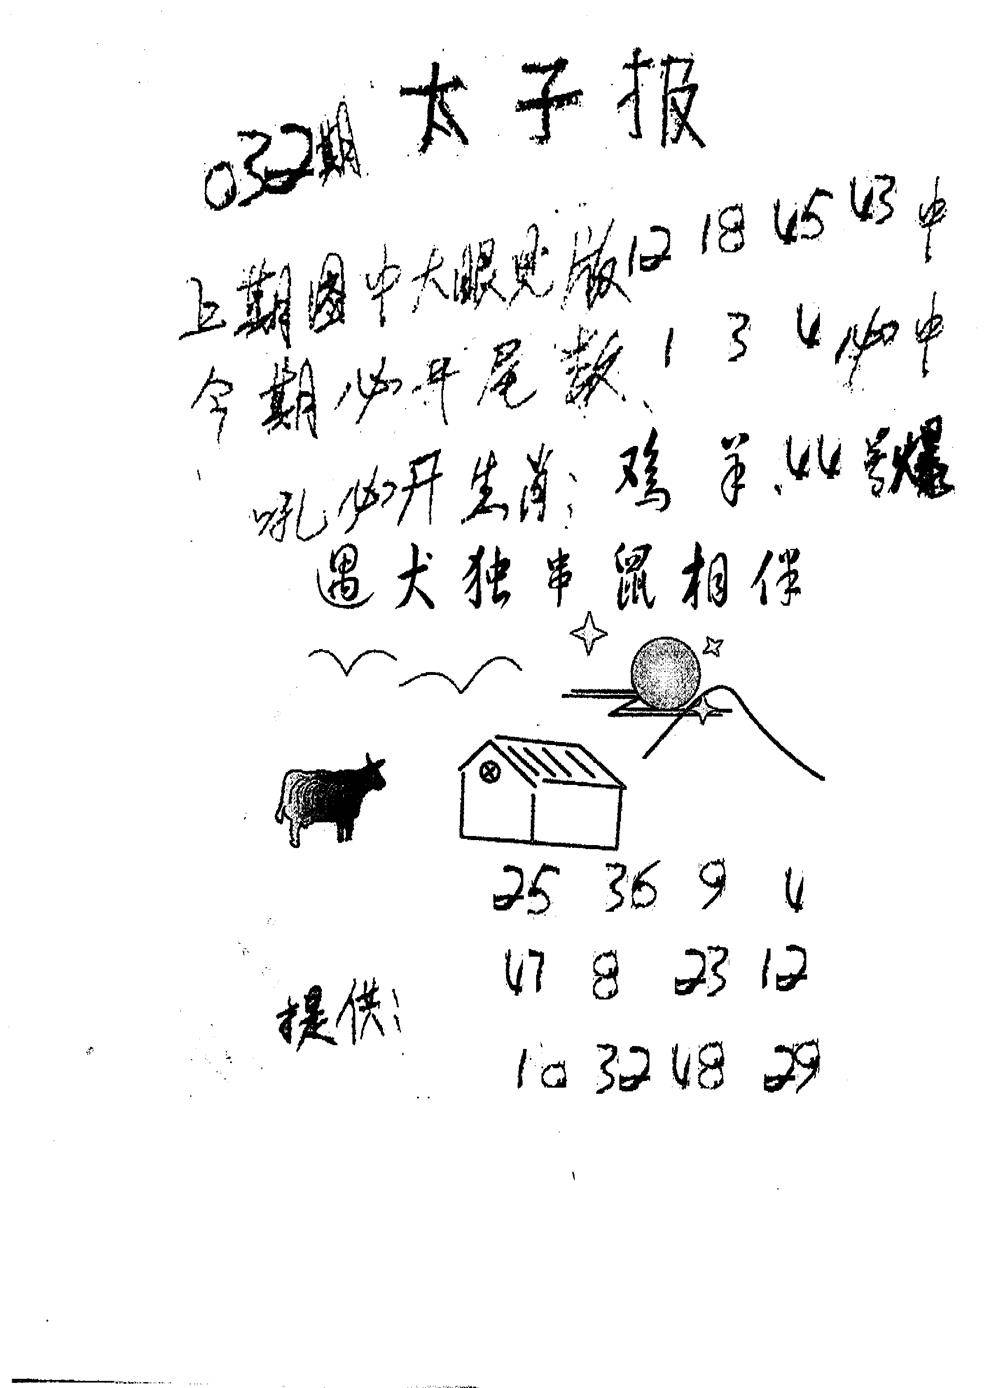 太子报
032期
上期图中大眼见版12 18 45 43中
今期必开尾数、1 3 4必中
吼必开生肖:鸡 羊、44号爆
遇犬独串鼠相伴
25 36 9 4
47 8 23 12
提供:
10 32 48 29